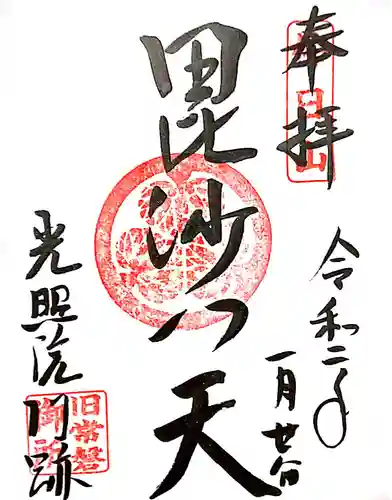 奉拝
令和二年
一月廿六日
毘沙門天
光照院門跡
旧常磐御所